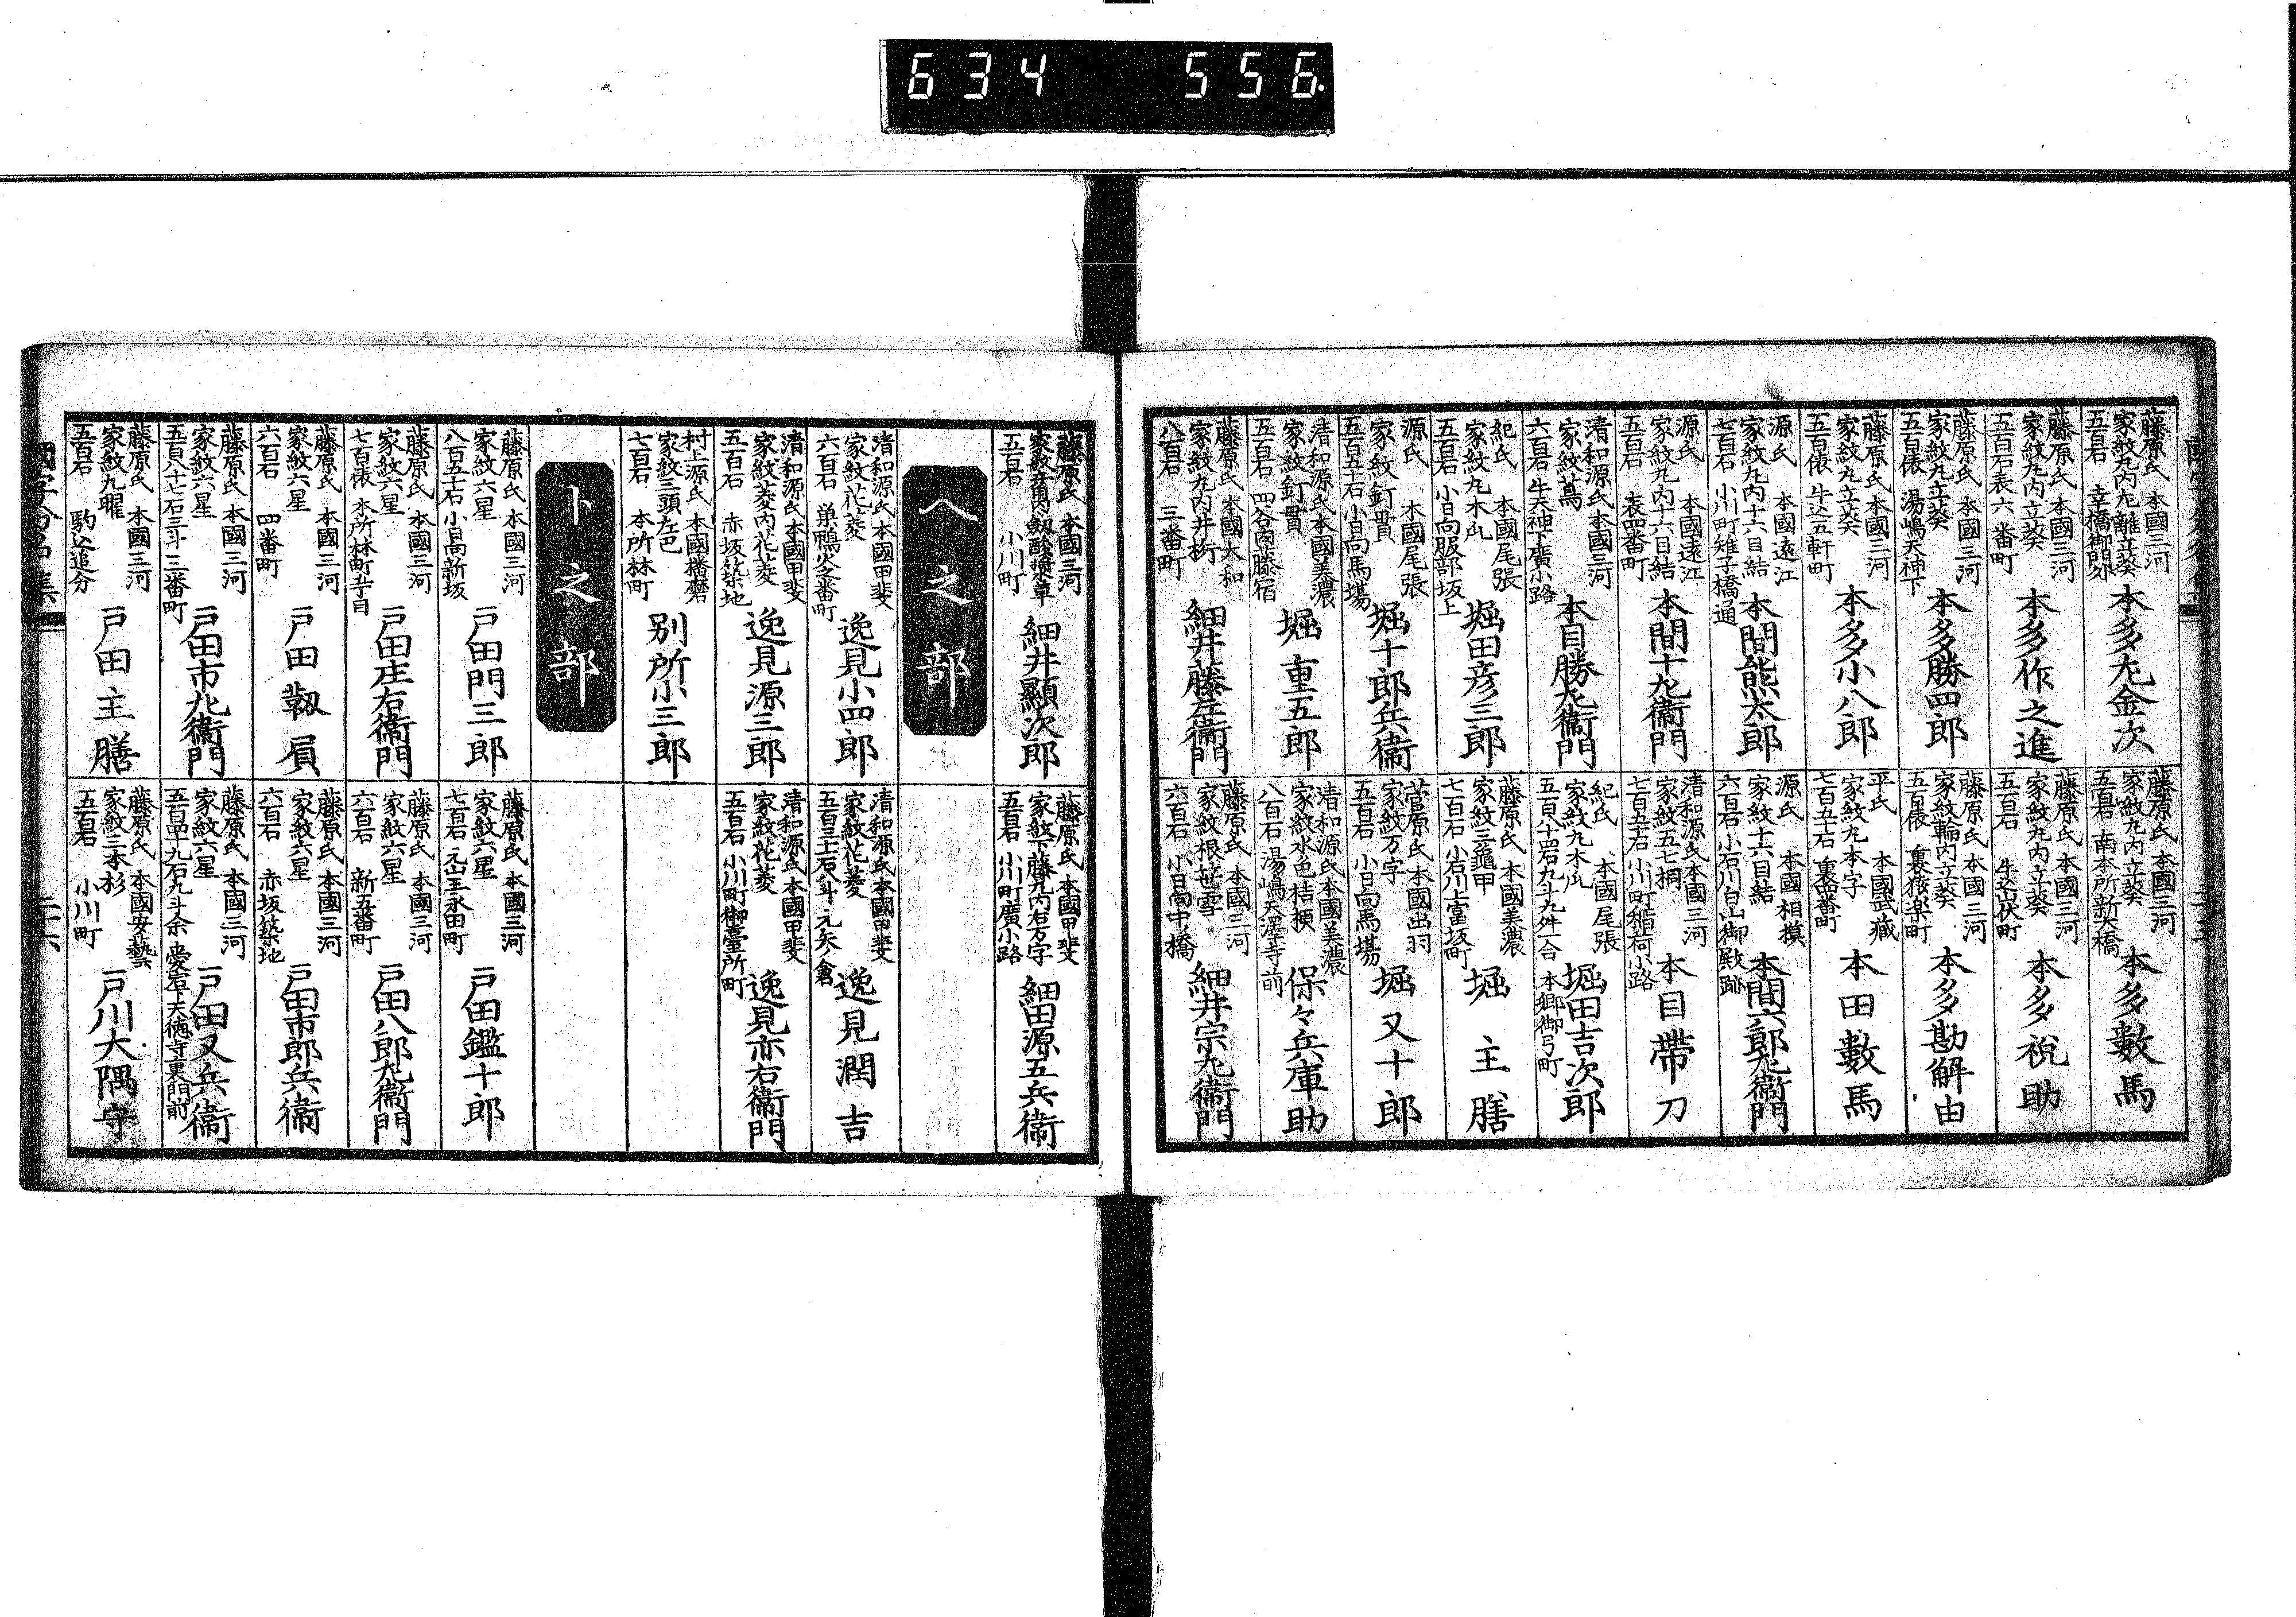 634 556.
藤原氏 本國三河
家紋丸内九離立葵
五百石 幸橋御門外
本多九金次
藤原氏 本國三河
家紋丸内立葵
五百石 表六番町
本多作之進
藤原氏 本國三河
家紋丸立葵
五百俵 湯嶋天神下
本多勝四郎
藤原氏 本國三河
家紋丸立葵
五百俵 牛込五軒町
本多小八郎
源氏 本國遠江
家紋丸内十六目結
七百石 小川町雉子橋通
本間熊太郎
源氏 本國遠江
家紋丸内十六目結
五百石 表四番町
本間十九衞門
清和源氏 本國三河
家紋蔦
六百石 牛天神下廣小路
本目勝九衞門
紀氏 本國尾張
家紋丸木瓜
五百石 小日向服部坂上
堀田彦三郎
源氏 本國尾張
家紋釘貫
五百五十石 小日向馬場
堀十郎兵衞
清和源氏 本國美濃
家紋釘貫
五百石 四谷内藤宿
堀重五郎
藤原氏 本國大和
家紋丸内井桁
八百石 三番町
細井藤左衞門
藤原氏 本國三河
家紋丸内立葵
五百石 南本所新大橋
本多數馬
藤原氏 本國三河
家紋丸内立葵
五百石 牛込
本多税助
藤原氏 本國三河
家紋輪内立葵
五百俵 裏猿楽町
本多勘解由
平氏 本國武蔵
家紋丸本字
七百五十石 裏四番町
本田數馬
源氏 本國相模
家紋十六目結
六百石 小石川白山御殿跡
本間六郎九衞門
清和源氏 本國三河
家紋五七桐
七百五十石 小川町稲荷小路
本目帶刀
紀氏 本國尾張
家紋丸木瓜
五百八十四石九斗九舛一合 本郷御弓町
堀田吉次郎
藤原氏 本國美濃
家紋三龜甲
七百石 小石川上富坂町
堀主膳
菅原氏 本國出羽
家紋万字
五百石 小日向馬場
堀又十郎
清和源氏 本國美濃
家紋水色桔梗
八百石 湯嶋天澤寺前
保々兵庫助
藤原氏 本國三河
家紋根笹雪
六百石 小日向中橋
細井宗九衞門
藤原氏 本國三河
五百石 小川町
細井顯次郎
へ之部
清和源氏 本國甲斐
家紋花菱
六百石 巣鴨火之番町
逸見小四郎
清和源氏 本國甲斐
家紋菱内花菱
五百石 赤坂築地
逸見源三郎
村上源氏 本國播磨
家紋三頭左巴
七百石 本所林町
別所小三郎
ト之部
藤原氏 本國三河
家紋六星
八百五十石 小日向新坂
戸田門三郎
藤原氏 本國三河
家紋六星
七百俵 本所林町五丁目
戸田庄右衞門
藤原氏 本國三河
家紋六星
六百石 四番町
戸田靱負
藤原氏 本國三河
家紋六星
五百八十七石三斗 三番町
戸田市九衞門
藤原氏 本國三河
家紋九曜
五百石 駒込追分
戸田主膳
藤原氏 本國甲斐
家紋下藤丸内右万字
五百石 小川町廣小路
細田源五兵衞
清和源氏 本國甲斐
家紋花菱
元矢ノ倉
逸見潤吉
清和源氏 本國甲斐
家紋花菱
五百石 小川町御臺所町
逸見亦右衞門
藤原氏 本國三河
家紋六星
七百石 元山王永田町
戸田鑑十郎
藤原氏 本國三河
家紋六星
六百石 新五番町
戸田八郎九衞門
藤原氏 本國三河
家紋六星
六百石 赤坂築地
戸田市郎兵衞
藤原氏 本國三河
家紋六星
五百四十九石九斗余 愛宕下天徳寺裏門前
戸田又兵衞
藤原氏 本國安藝
家紋三本杉
五百石 小川町
戸川大隅守
國字分名集
二十六